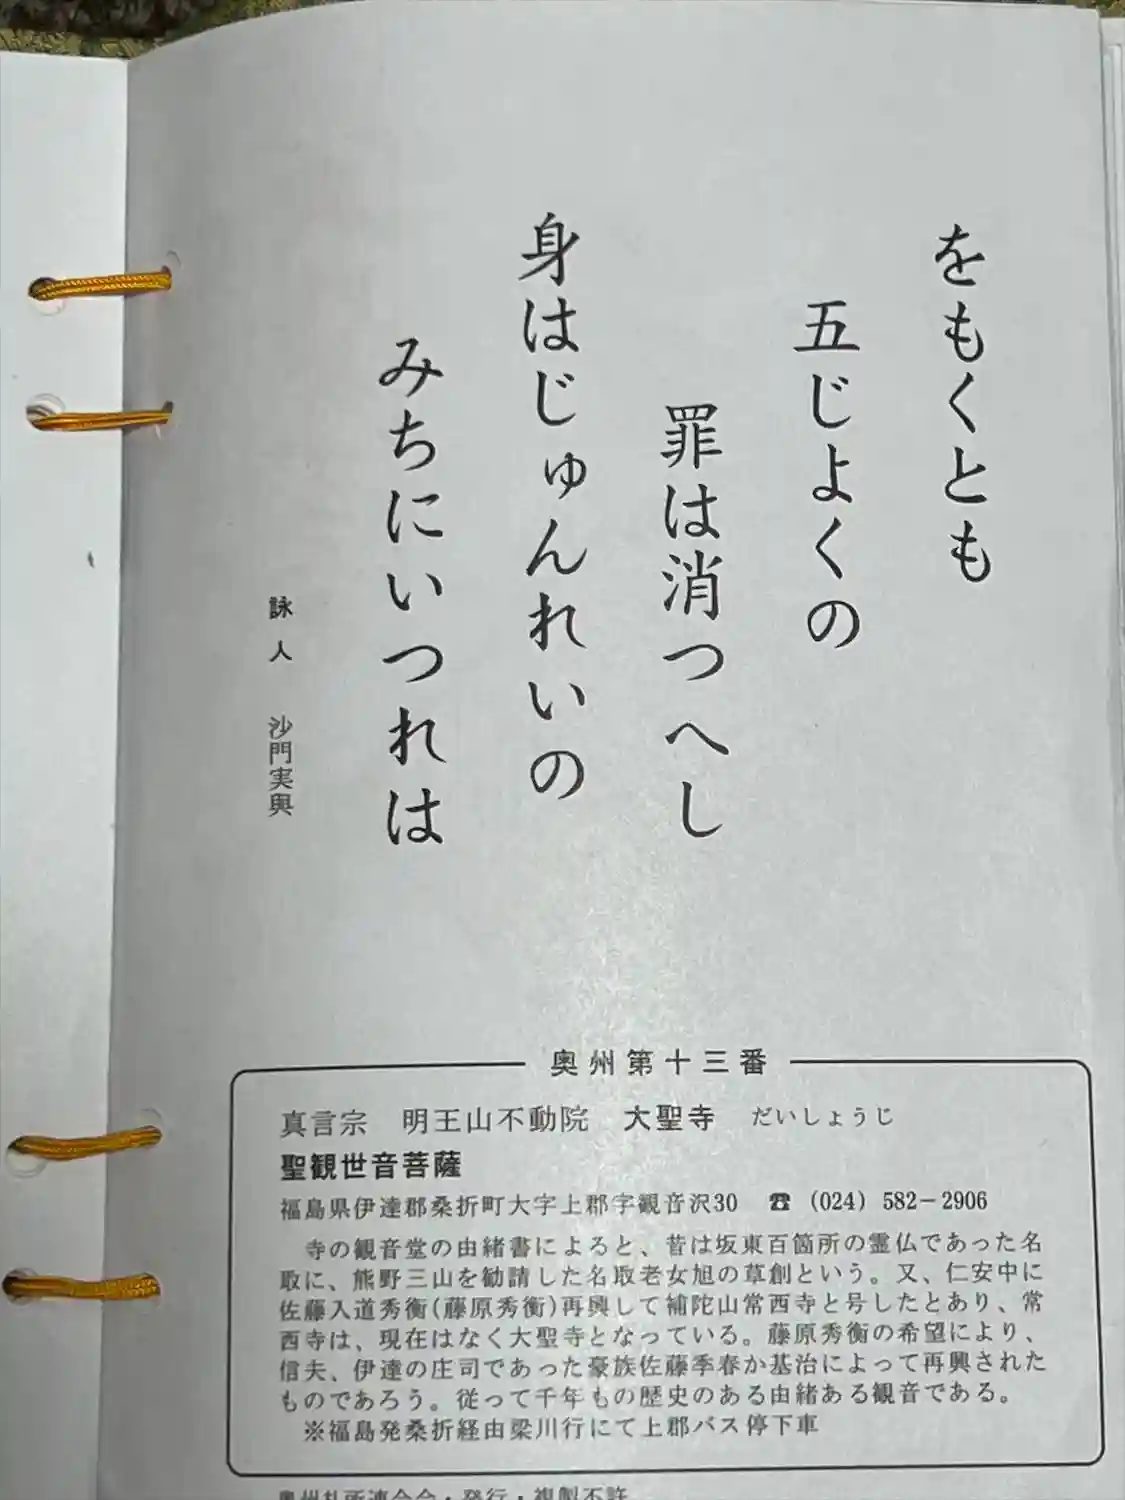 をもくとも
五じよくの
罪は消つへし
身はじゅんれいの
みちにいつれは
詠人 沙門実興
奥州第十三番
真言宗 明王山不動院 大聖寺 だいしょうじ
聖観世音菩薩
福島県伊達郡桑折町大字上郡字観音沢30 ☎ (024) 582－2906
寺の観音堂の由緒書によると、昔は坂東百箇所の霊仏であった名
取に、熊野三山を勧請した名取老女旭の草創という。又、仁安中に
佐藤入道秀衡(藤原秀衡)再興して補陀山常西寺と号したとあり、常
西寺は、現在はなく大聖寺となっている。藤原秀衡の希望により、
信夫、伊達の庄司であった豪族佐藤季春か基治によって再興された
ものであろう。従って千年もの歴史のある由緒ある観音である。
※福島発桑折経由梁川行にて上郡バス停下車
奥州札所連合会・発行・複製不許